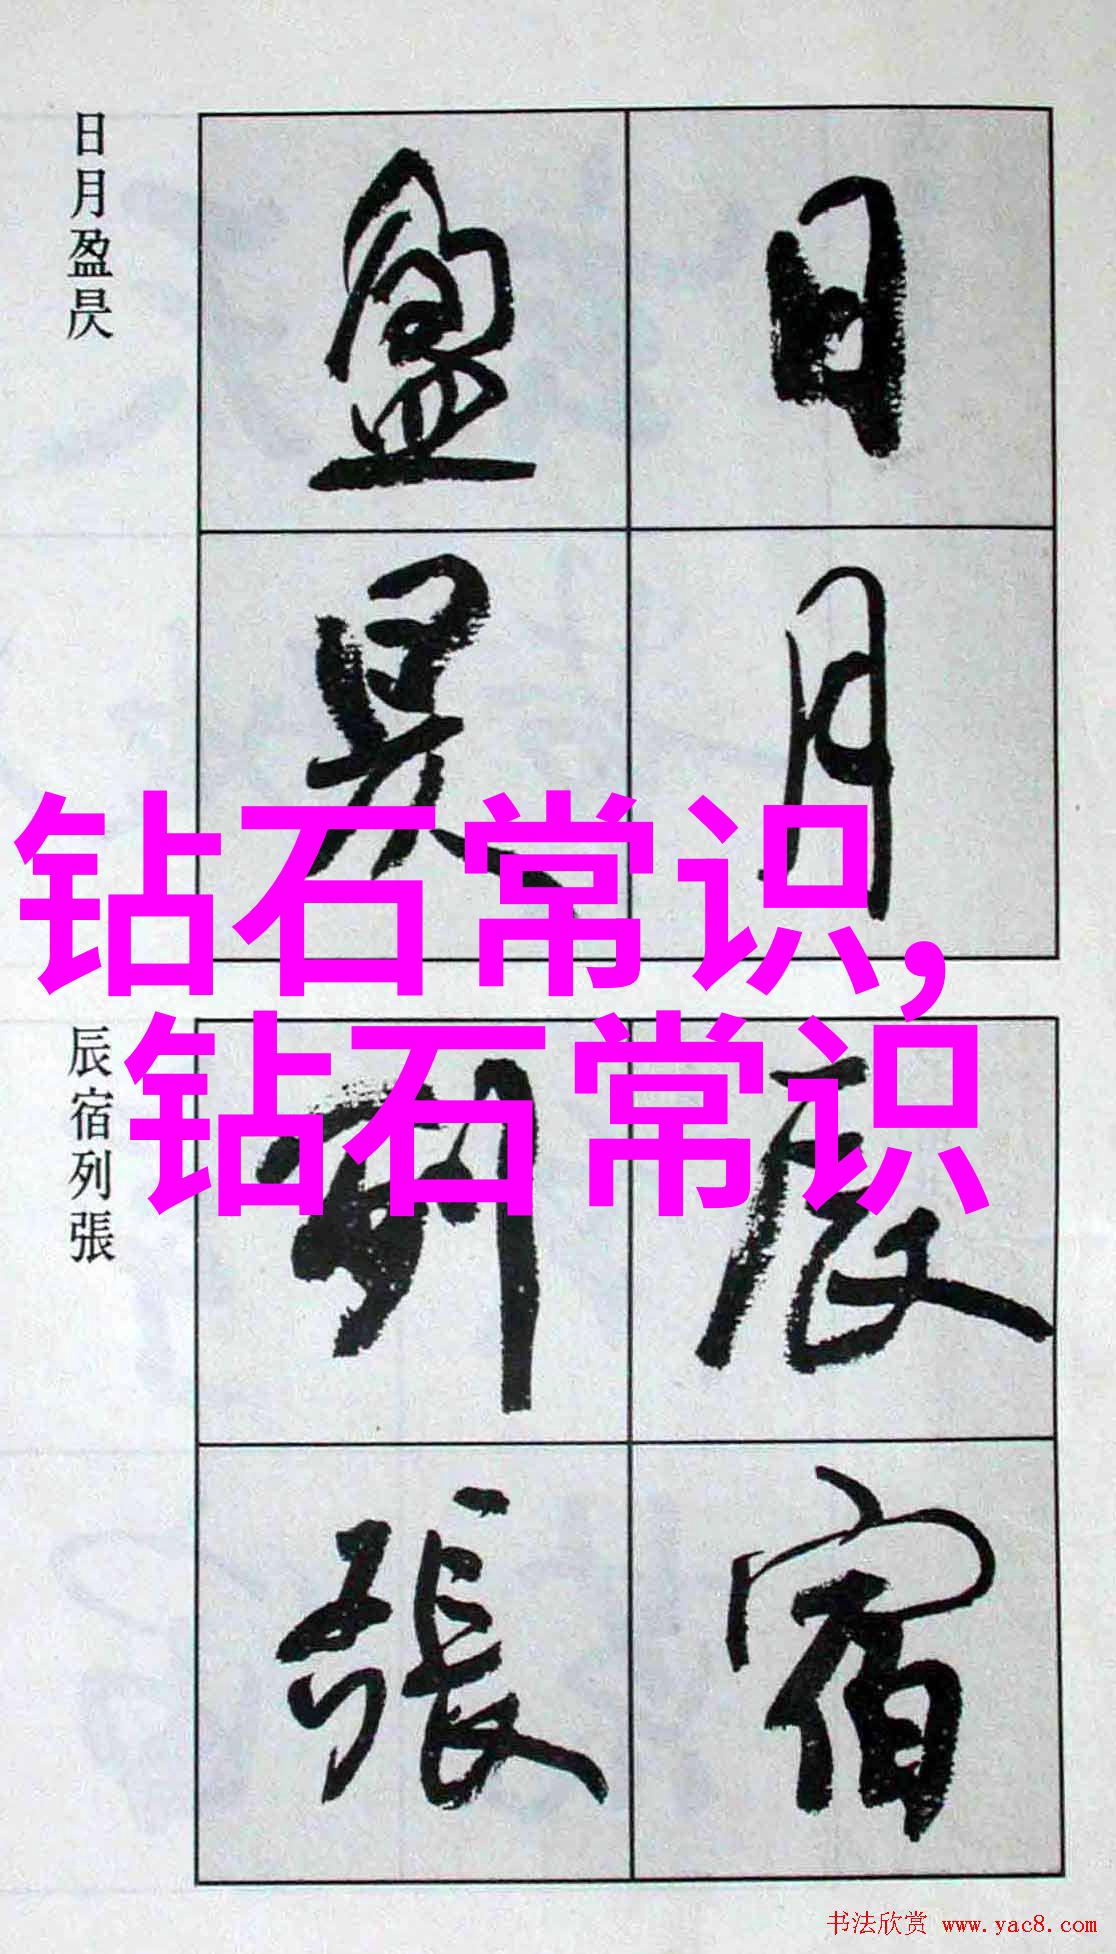 日月盈昃
盈 日
昃 月
钻石常识,
钻石常识
辰宿列張
列 辰
張 宿
书法欣赏 www.yac8.com